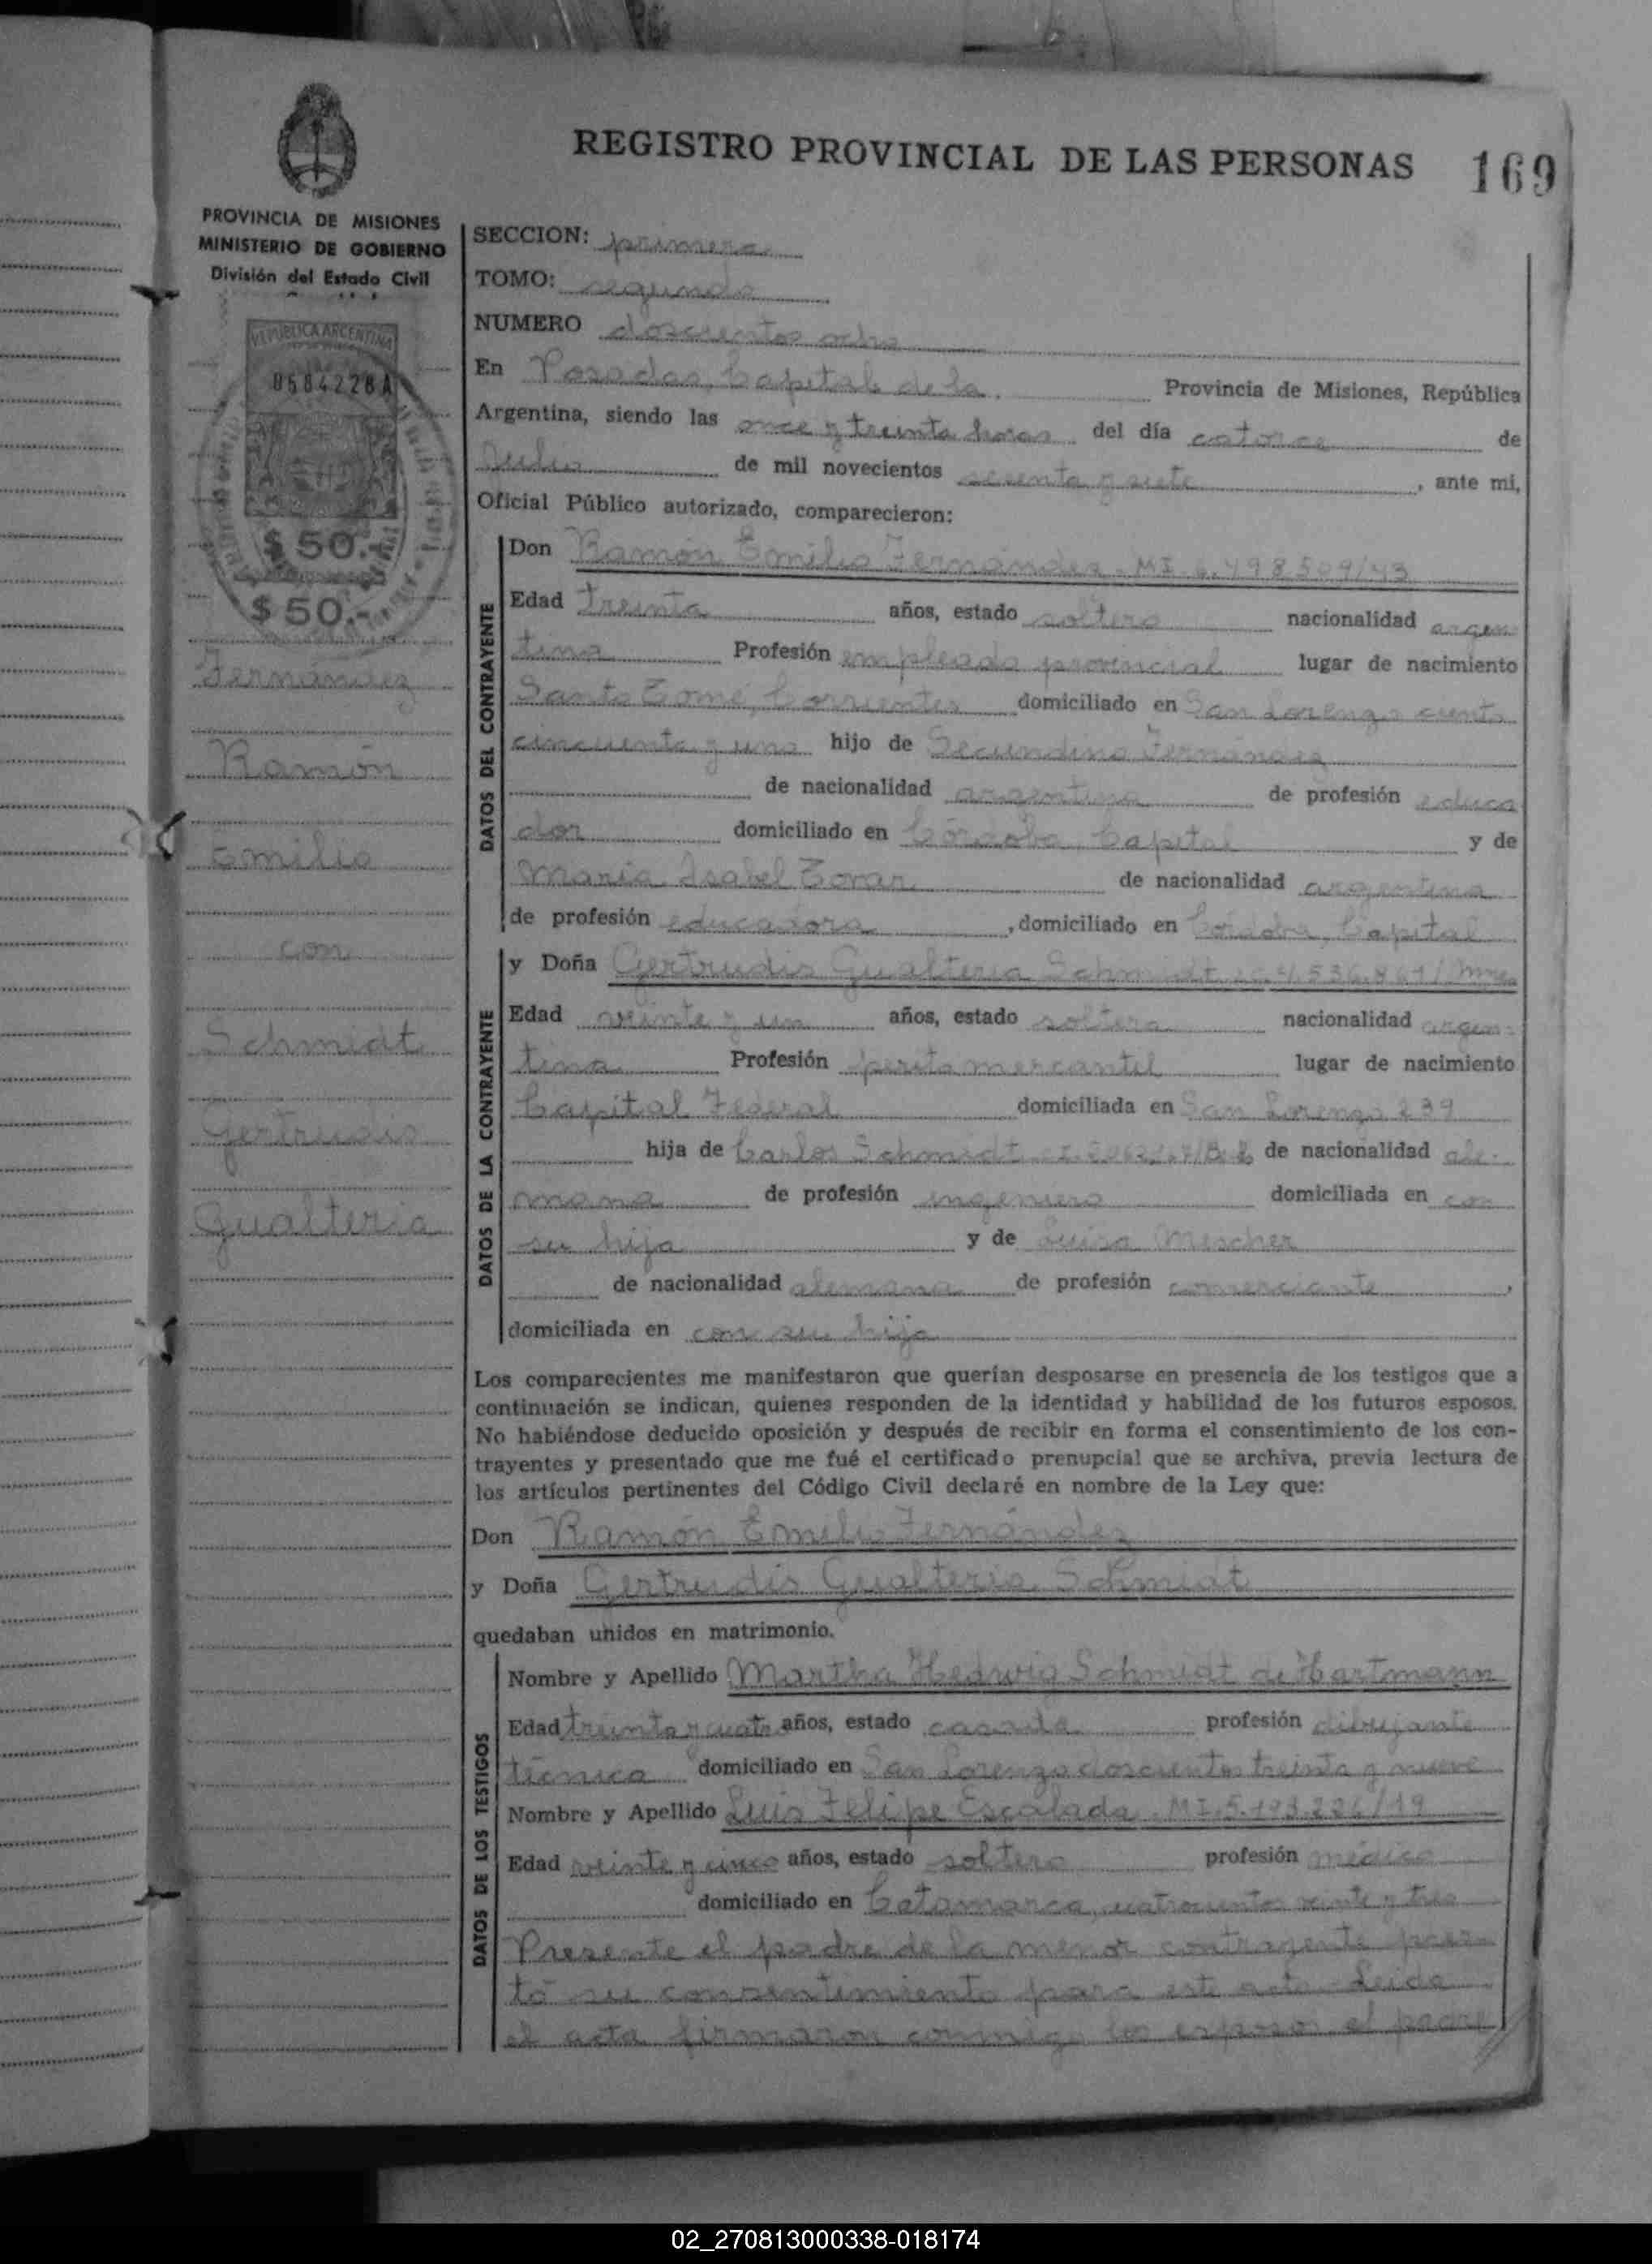 REGISTRO PROVINCIAL DE LAS PERSONAS 169
PROVINCIA DE MISIONES
MINISTERIO DE GOBIERNO
División del Estado Civil
REPUBLICA ARGENTINA
0584228A
$ 50.-
$ 50.-
Fernández
Ramón
Emilio
con
Schmidt
Gertrudis
Gualteria
SECCION: primera
TOMO: segundo
NUMERO doscientos ocho
En Posadas, Capital de la Provincia de Misiones, República
Argentina, siendo las once y treinta horas del día catorce de
Julio de mil novecientos secenta y siete, ante mi,
Oficial Público autorizado, comparecieron:
DATOS DEL CONTRAYENTE
Don Ramón Emilio Fernández - MI. 6.498.509/43
Edad treinta años, estado soltero nacionalidad argen
tina Profesión empleado provincial lugar de nacimiento
Santo Tomé, Corrientes domiciliado en San Lorenzo ciento
cincuenta y uno hijo de Secundino Fernández
de nacionalidad argentina de profesión educa
dor domiciliado en Córdoba, Capital y de
María Isabel Tovar de nacionalidad argentina
de profesión educadora, domiciliado en Córdoba, Capital
DATOS DE LA CONTRAYENTE
y Doña Gertrudis Gualteria Schmidt
Edad veinte y un años, estado soltera nacionalidad argen-
tina Profesión perito mercantil lugar de nacimiento
Capital Federal domiciliada en San Lorenzo 239
hija de Carlos Schmidt de nacionalidad ale-
mana de profesión ingeniero domiciliada en con
su hija y de Luisa Mescher
de nacionalidad alemana de profesión comerciante,
domiciliada en con su hija
Los comparecientes me manifestaron que querían desposarse en presencia de los testigos que a
continuación se indican, quienes responden de la identidad y habilidad de los futuros esposos.
No habiéndose deducido oposición y después de recibir en forma el consentimiento de los con-
trayentes y presentado que me fué el certificado prenupcial que se archiva, previa lectura de
los artículos pertinentes del Código Civil declaré en nombre de la Ley que:
Don Ramón Emilio Fernández
y Doña Gertrudis Gualteria Schmidt
quedaban unidos en matrimonio.
DATOS DE LOS TESTIGOS
Nombre y Apellido Martha Hedwig Schmidt de Hartmann
Edad treinta y cuatro años, estado casada profesión dibujante
técnica domiciliado en San Lorenzo doscientos treinta y nueve
Nombre y Apellido Luis Felipe Escalada - MI.
Edad veinte y cinco años, estado soltero profesión médico
domiciliado en Catamarca, cuatrocientos veinte y tres
Presente el padre de la menor contrayente pres
tó su consentimiento para este acto. Leida
el acta firmaron conmigo los esposos el padre
02_270813000338-018174